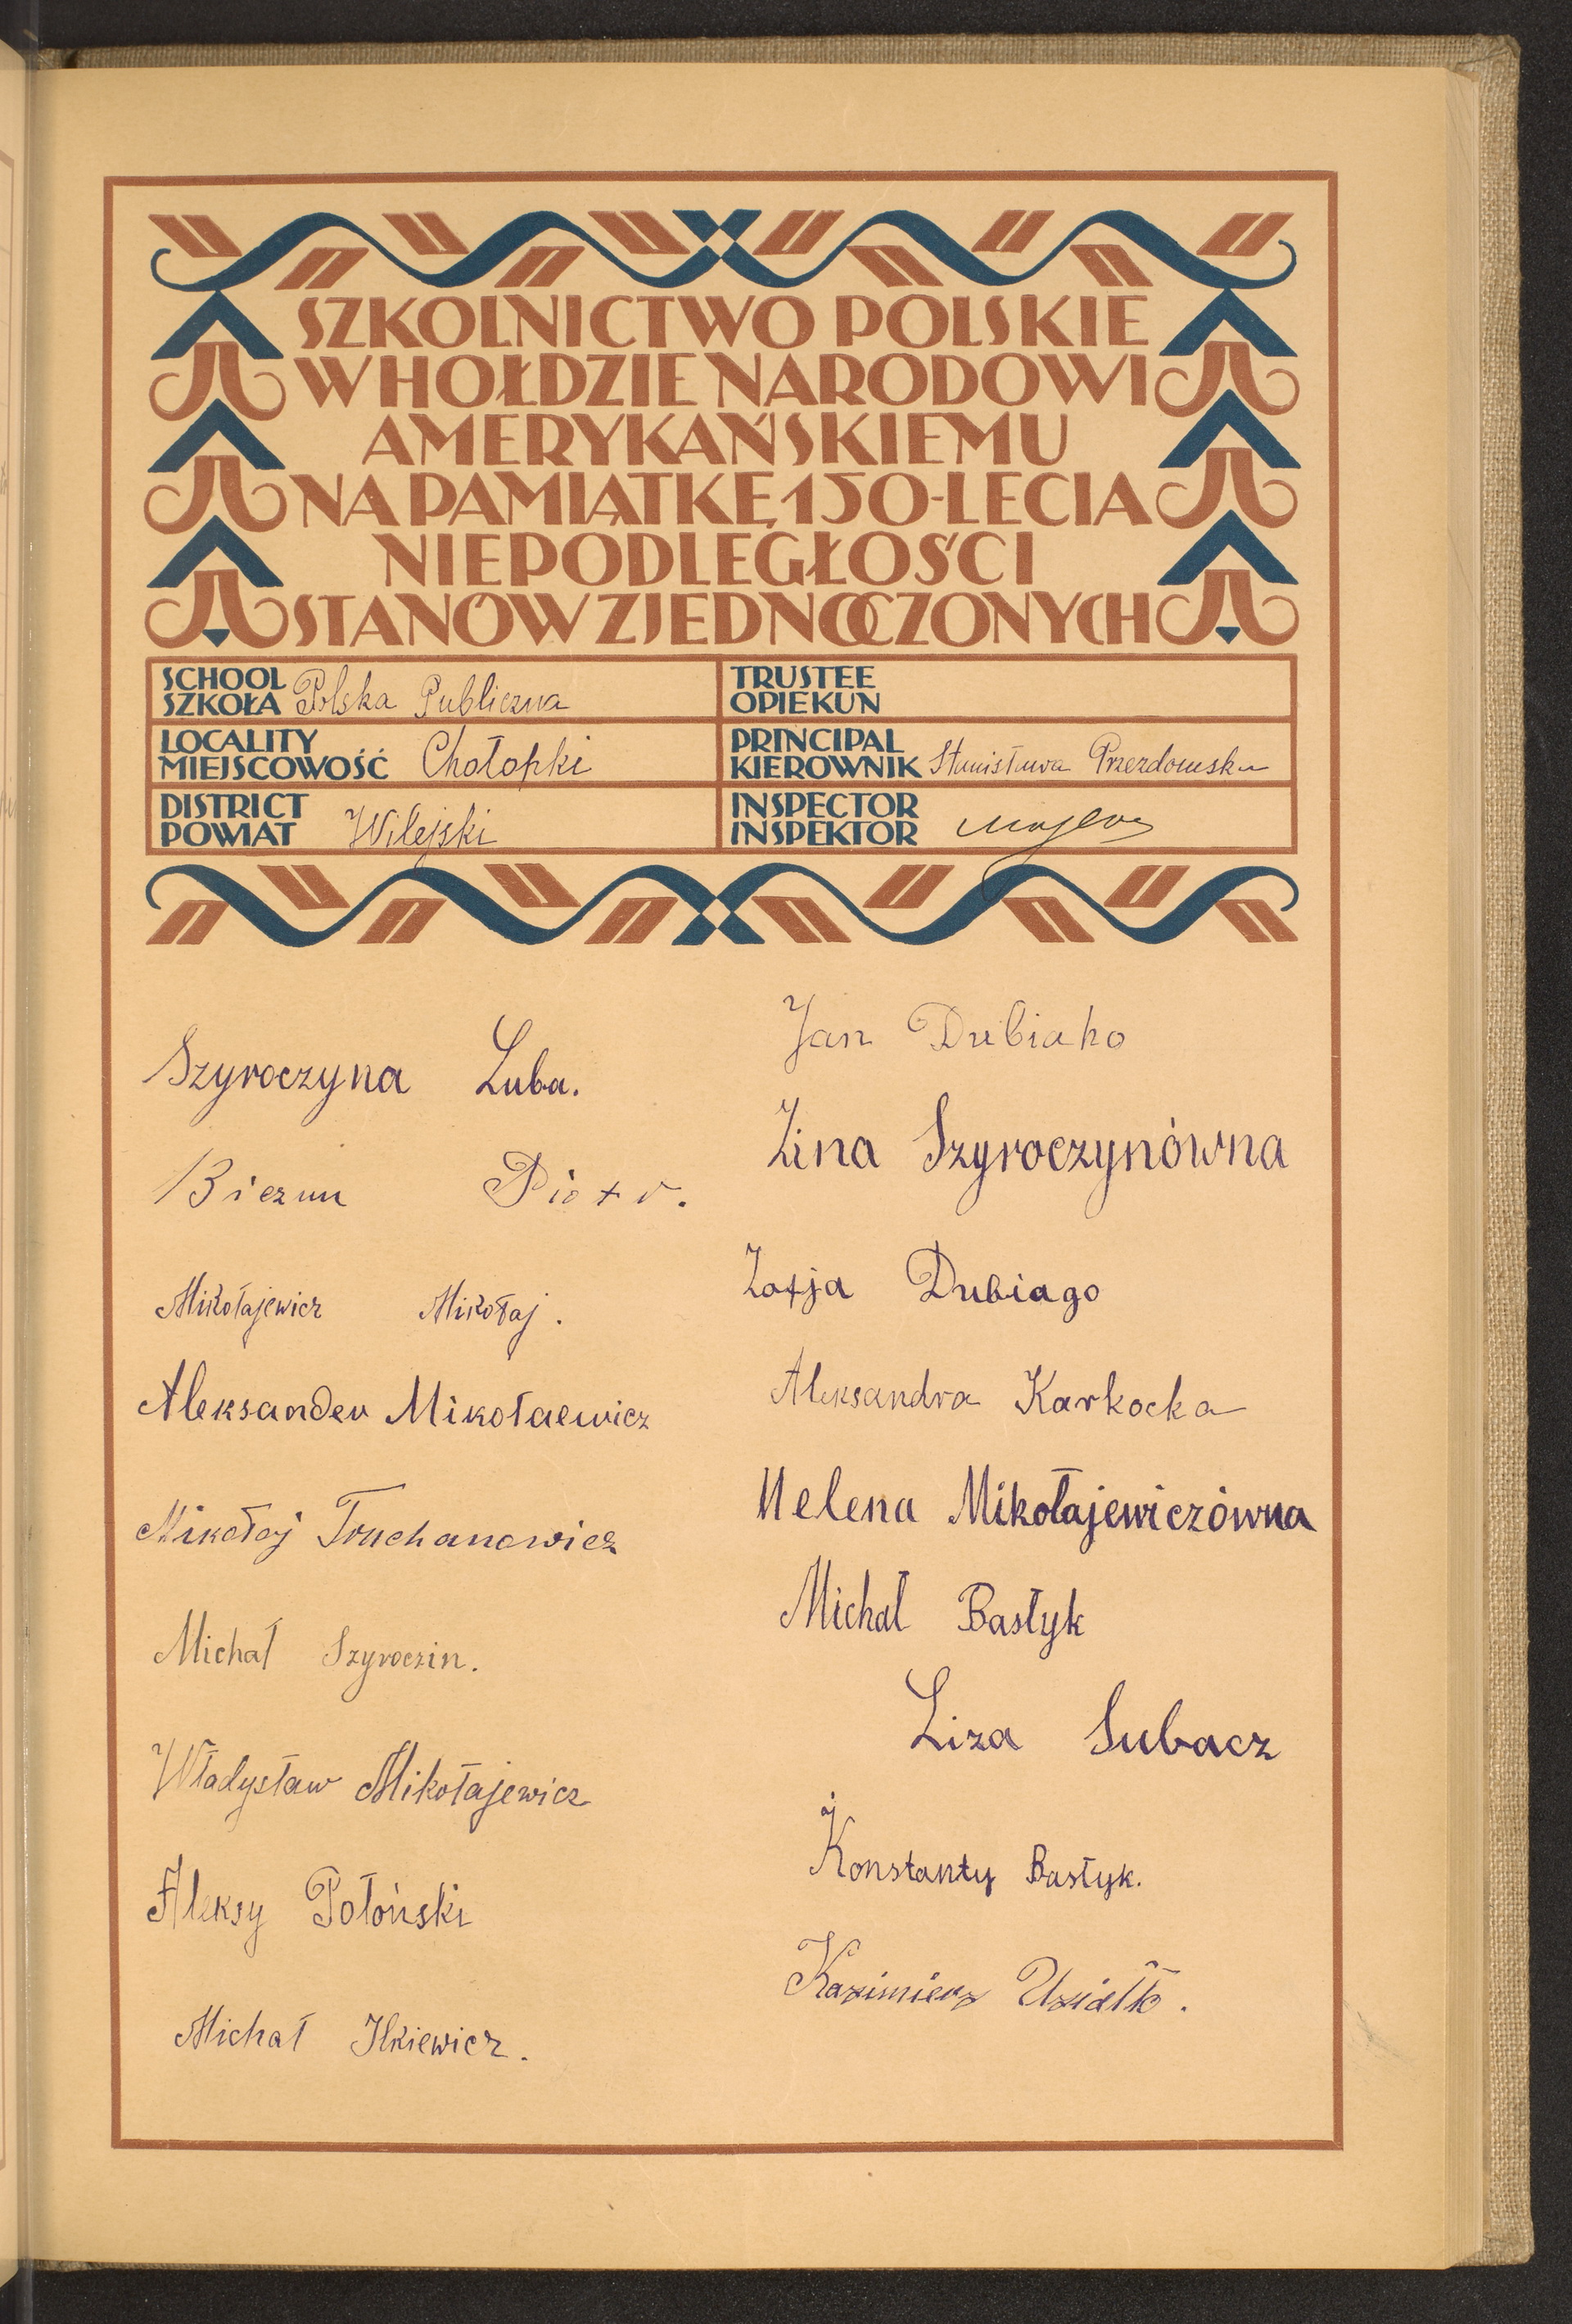 SZKOLNICTWO POLSKIE
W HOŁDZIE NARODOWI
AMERYKAŃSKIEMU
NA PAMIĄTKĘ 150-LECIA
NIEPODLEGŁOŚCI
STANÓW ZJEDNOCZONYCH
SCHOOL
SZKOŁA Polska Publiczna
TRUSTEE
OPIEKUN
LOCALITY
MIEJSCOWOŚĆ Chołopki
PRINCIPAL
KIEROWNIK Stanisława Przezdomska
DISTRICT
POWIAT Wilejski
INSPECTOR
INSPEKTOR
Szyroczyna Luba.
Biczun Piotr.
Mikołajewicz Mikołaj.
Aleksander Mikołaewicz
Mikołaj Truchanowicz
Michał Szyroczin.
Władysław Mikołajewicz
Aleksy Połoński
Michał Ilkiewicz.
Jan Dubiaho
Zina Szyroczynówna
Zofja Dubiago
Aleksandra Karkocka
Helena Mikołajewiczówna
Michał Bastyk
Liza Subacz
Konstanty Bastyk.
Kazimierz Uziałło.